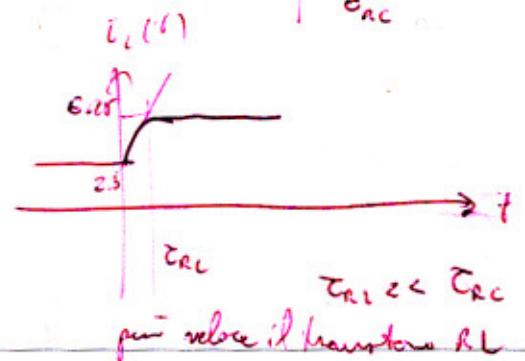 τRC
iL(t)
2.5
t
τRL
τRL << τRC
più veloce il transitorio RL